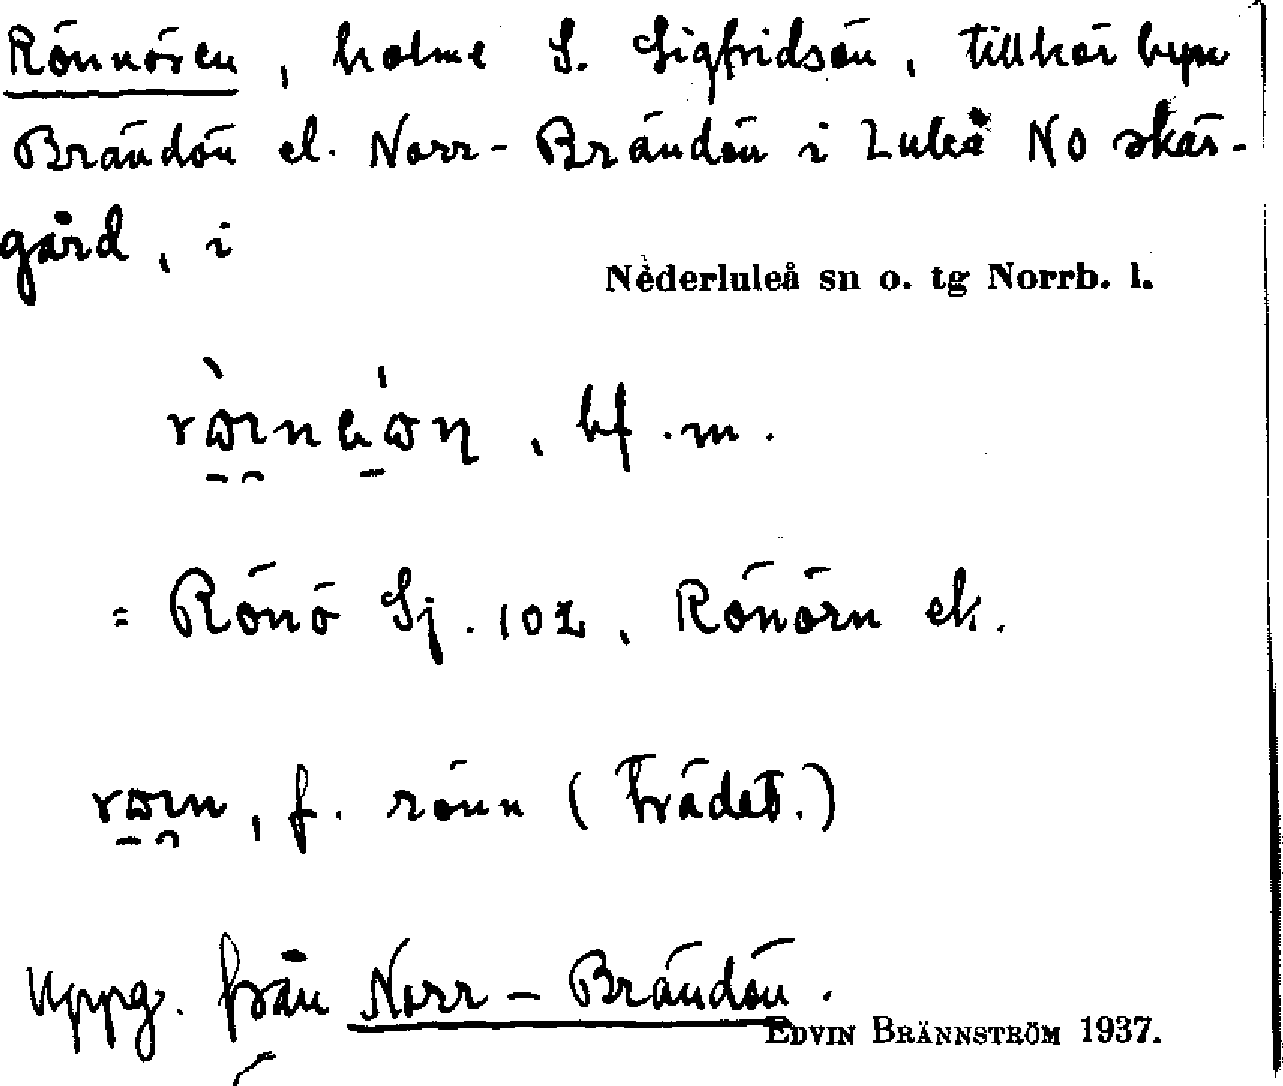 Rönnören, holme S. Sigfridsön, tillhör byn
Brändön el. Norr-Brändön i Luleå NO skär-
gård, i
Nederluleå sn o. tg Norrb. l.
bf. m.
= Rönö Sj. 102, Rönörn ek.
f. rönn (Trädet.)
Uppg. från Norr-Brändön.
EDVIN BRÄNNSTRÖM 1937.